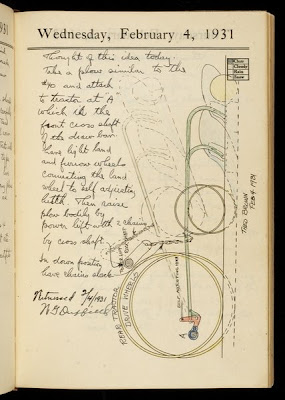 Wednesday, February 4, 1931
Clear
Cloudy
Rain
Snow
Thought of this idea today
Take a plow similar to the
#40 and attach
to tractor at A
which is the
front cross shaft
of the draw bar
Have light land
and furrow wheels
connecting the land
wheel to self adjusting
hitch. Then raise
plow bodily by
power lift with 2 chains
by cross shaft.
In down position
have chains slack
Witnessed 2/4/1931
REAR TRACTOR
DRIVE WHEELS
SELF ADJUSTING
A
THEO BROWN
FEB 4 1931